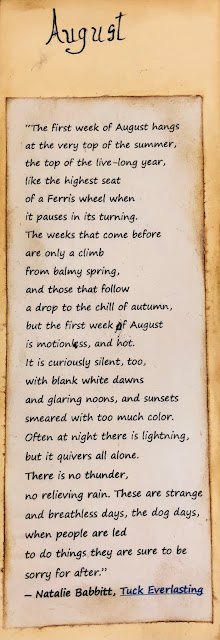 August
“The first week of August hangs
at the very top of the summer,
the top of the live-long year,
like the highest seat
of a Ferris wheel when
it pauses in its turning.
The weeks that come before
are only a climb
from balmy spring,
and those that follow
a drop to the chill of autumn,
but the first week of August
is motionless, and hot.
It is curiously silent, too,
with blank white dawns
and glaring noons, and sunsets
smeared with too much color.
Often at night there is lightning,
but it quivers all alone.
There is no thunder,
no relieving rain. These are strange
and breathless days, the dog days,
when people are led
to do things they are sure to be
sorry for after.”
― Natalie Babbitt, Tuck Everlasting